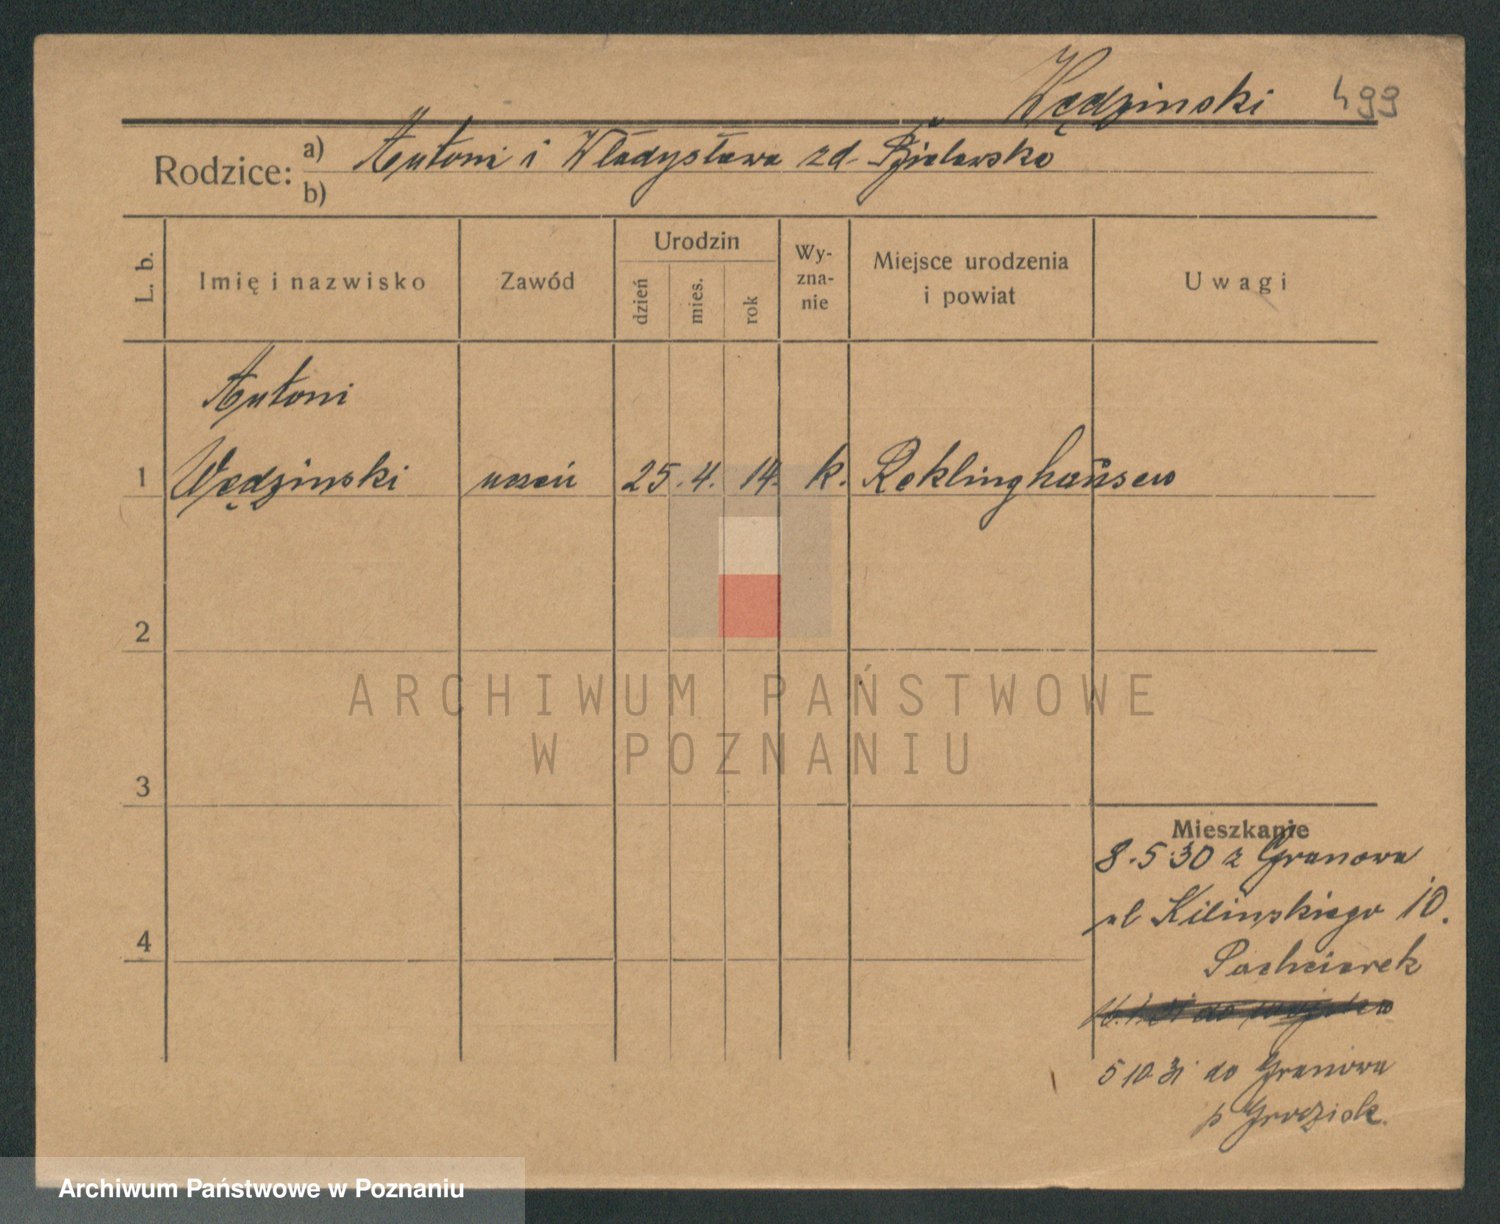 Wędzinski 499
Rodzice: a) Antoni i Władysława zd.
b)
L. b.
Imię i nazwisko
Zawód
Urodzin
dzień
mies.
rok
Wy-
zna-
nie
Miejsce urodzenia
i powiat
Uwagi
Antoni
1 Wędzinski uczeń 25. 4. 14. k. Reklinghausen
2
3
4
Mieszkanie
8.5.30 z Granowa
ul Kilińskiego 10.
Pachciarek
5 10 31 do Granowa
p Grodzisk.
ARCHIWUM PAŃSTWOWE
W POZNANIU
Archiwum Państwowe w Poznaniu